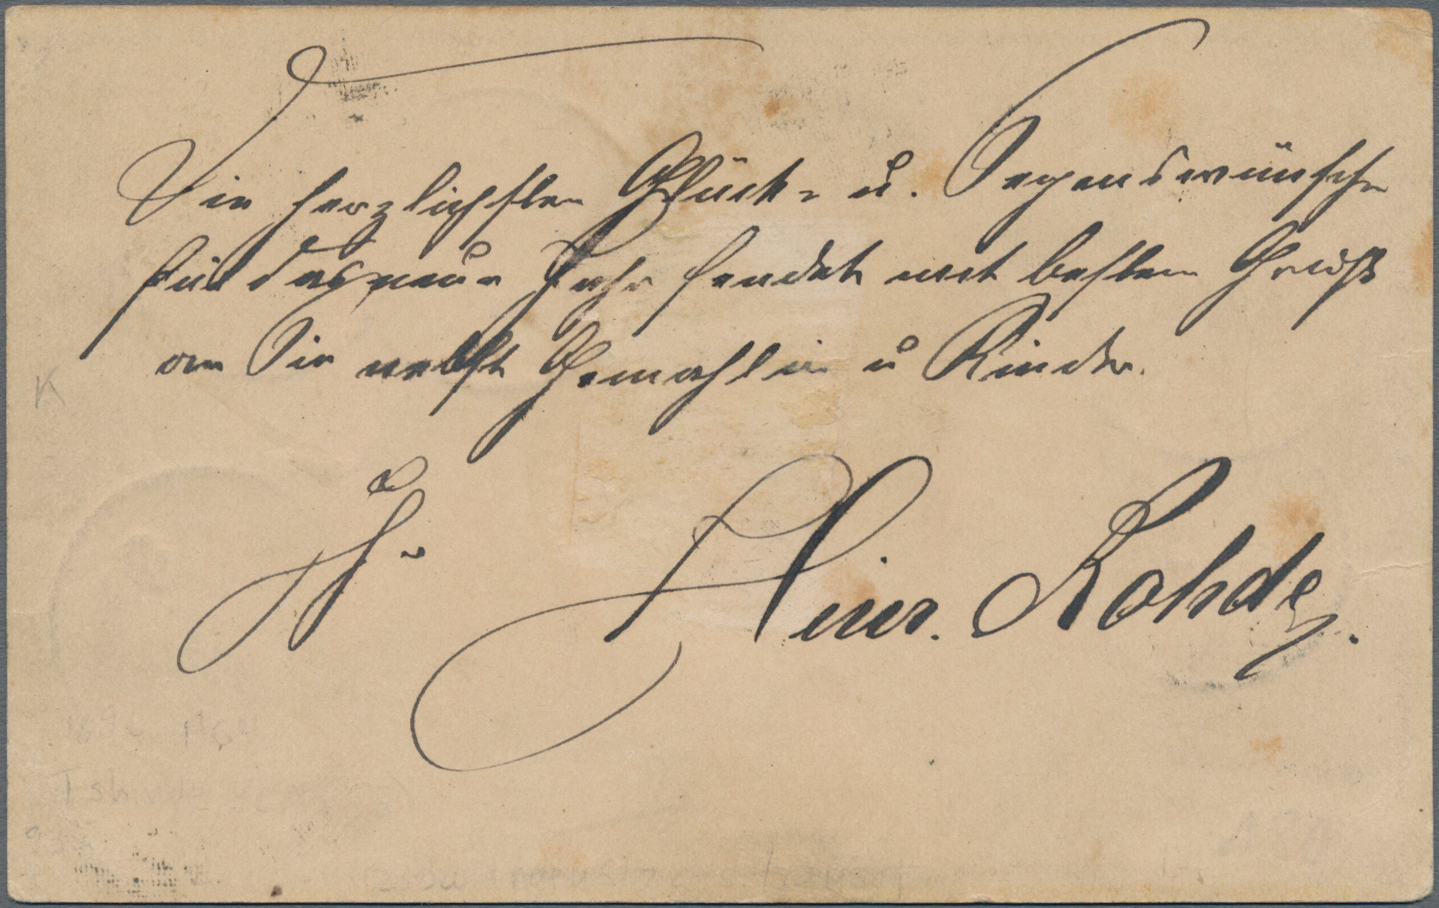 Die herzlichsten Glück- u. Segenswünsche
für das neue Jahr sendet mit bestem Gruß
an Sie nebst Gemahlin u Kinder.
Ihr Heinr. Rohde.
K